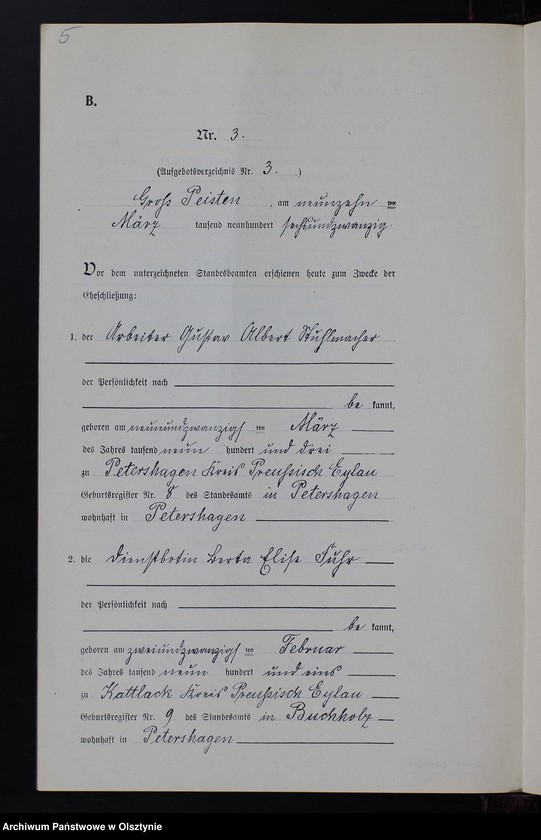 5
B.
Nr. 3.
(Aufgebotsverzeichnis Nr. 3.)
Groß Peisten, am neunzehn ten
März tausend neunhundert sechsundzwanzig.
Vor dem unterzeichneten Standesbeamten erschienen heute zum Zwecke der
Eheschließung:
1. der Arbeiter Gustav Albert Stuhlmacher
der Persönlichkeit nach
be kannt,
geboren am neunundzwanzigs ten März
des Jahres tausend neun hundert und drei
zu Petershagen Kreis Preußisch Eylau
Geburtsregister Nr. 8 des Standesamts in Petershagen
wohnhaft in Petershagen
2. die Dienstbotin Berta Elise Fuhr
der Persönlichkeit nach
be kannt,
geboren am zweiundzwanzigs ten Februar
des Jahres tausend neun hundert und eins
zu Kattlack Kreis Preußisch Eylau
Geburtsregister Nr. 9 des Standesamts in Buchholz
wohnhaft in Petershagen
Archiwum Państwowe w Olsztynie